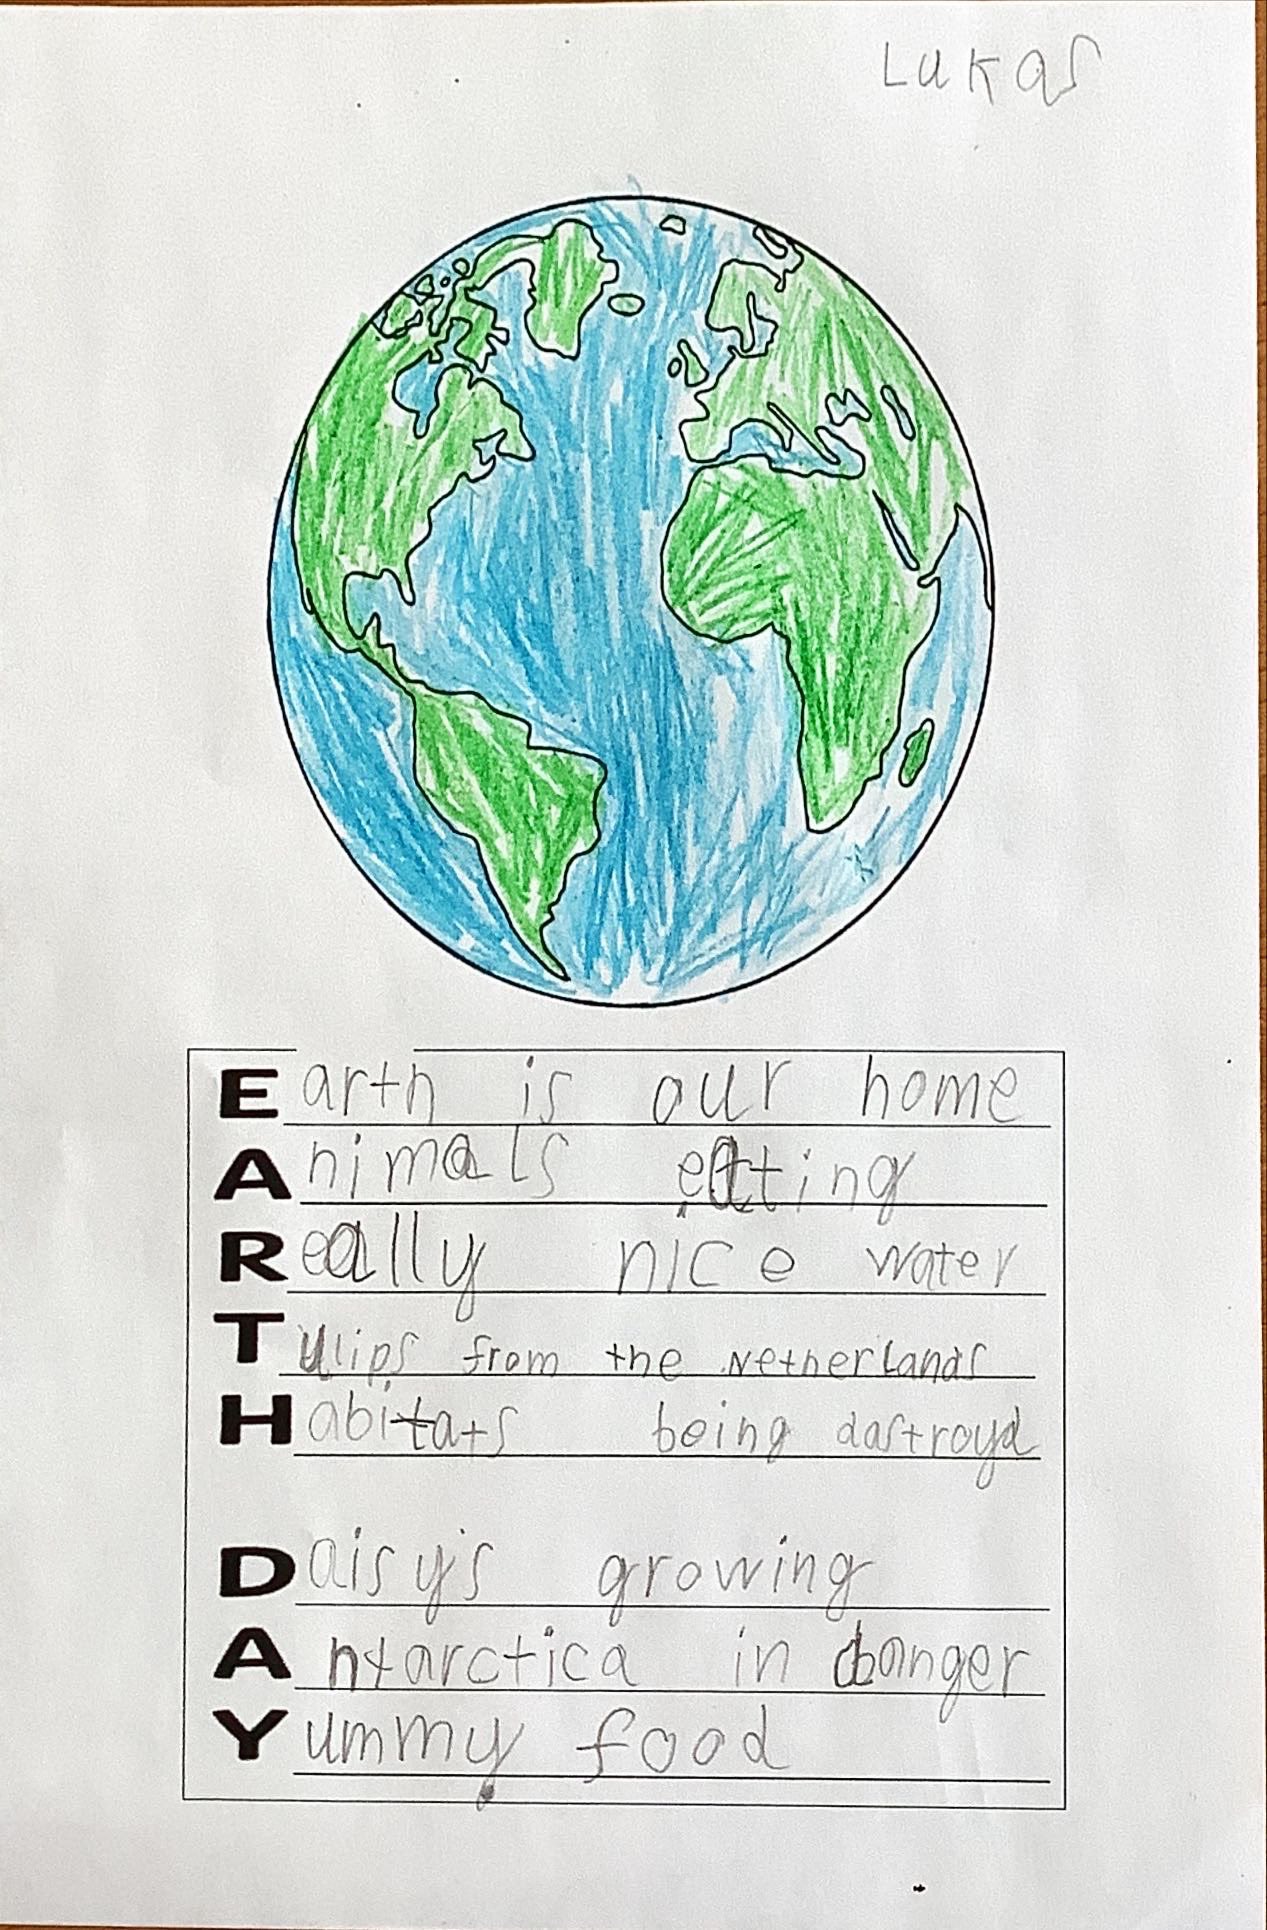 Lukas
Earth is our home
Animals eating
Really nice water
Tulips from the Netherlands
Habitats being dastroyd
Daisy's growing
Antarctica in danger
Yummy food